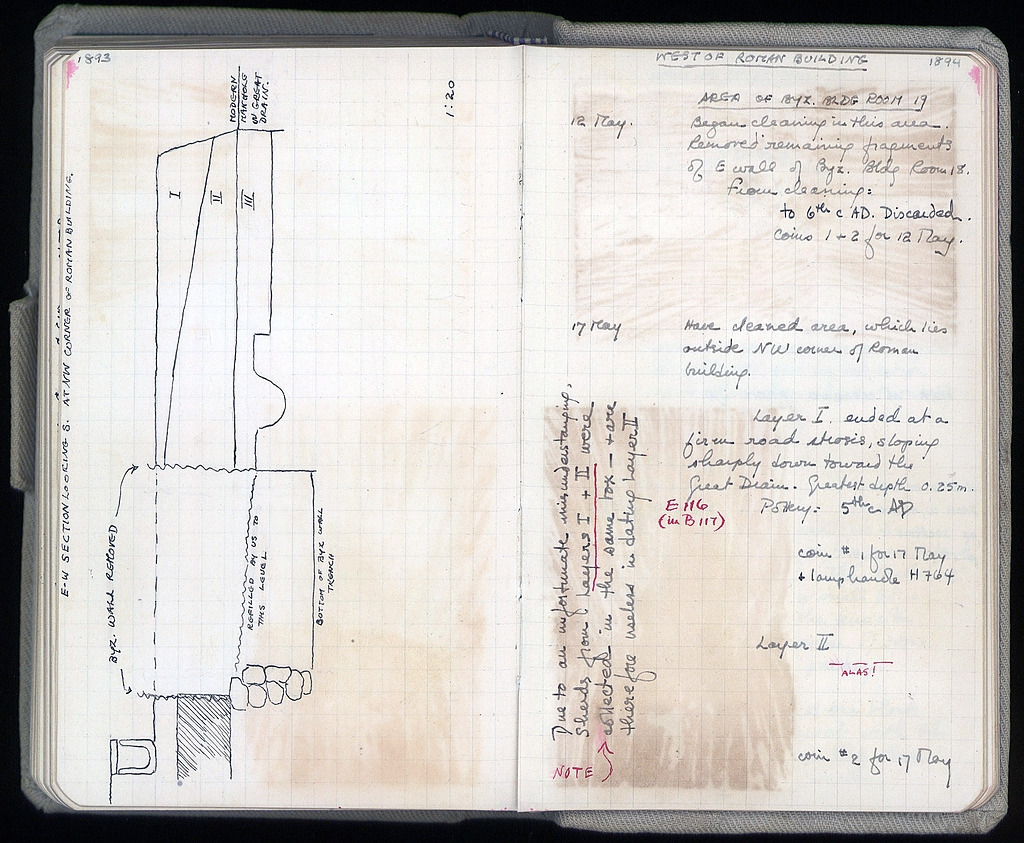 1893
E-W SECTION LOOKING S. AT NW CORNER OF ROMAN BUILDING.
MODERN
MANHOLE
IN GREAT
DRAIN.
1:20
I
II
III
BYZ. WALL REMOVED
REFILLED BY US TO
THIS LEVEL
BOTTOM OF BYZ WALL
TRENCH
WEST OF ROMAN BUILDING
1894
AREA OF BYZ. BLDG ROOM 19
12 May.
Began cleaning in this area.
Removed remaining fragments
of E wall of Byz. Bldg Room 18.
From cleaning:
to 6th c AD. Discarded.
coins 1 + 2 for 12 May.
17 May
Have cleaned area, which lies
outside NW corner of Roman
building.
Layer I. ended at a
firm road strosis, sloping
sharply down toward the
Great Drain. Greatest depth 0.25m.
E 116
(in B 117)
Pottery: 5th c AD
coin #1 for 17 May
+ lamp handle H 764
Layer II
ALAS!
coin #2 for 17 May
Due to an unfortunate misunderstanding,
Sherds from Layers I + II were
collected in the same box — + are
therefore useless in dating Layer II
NOTE